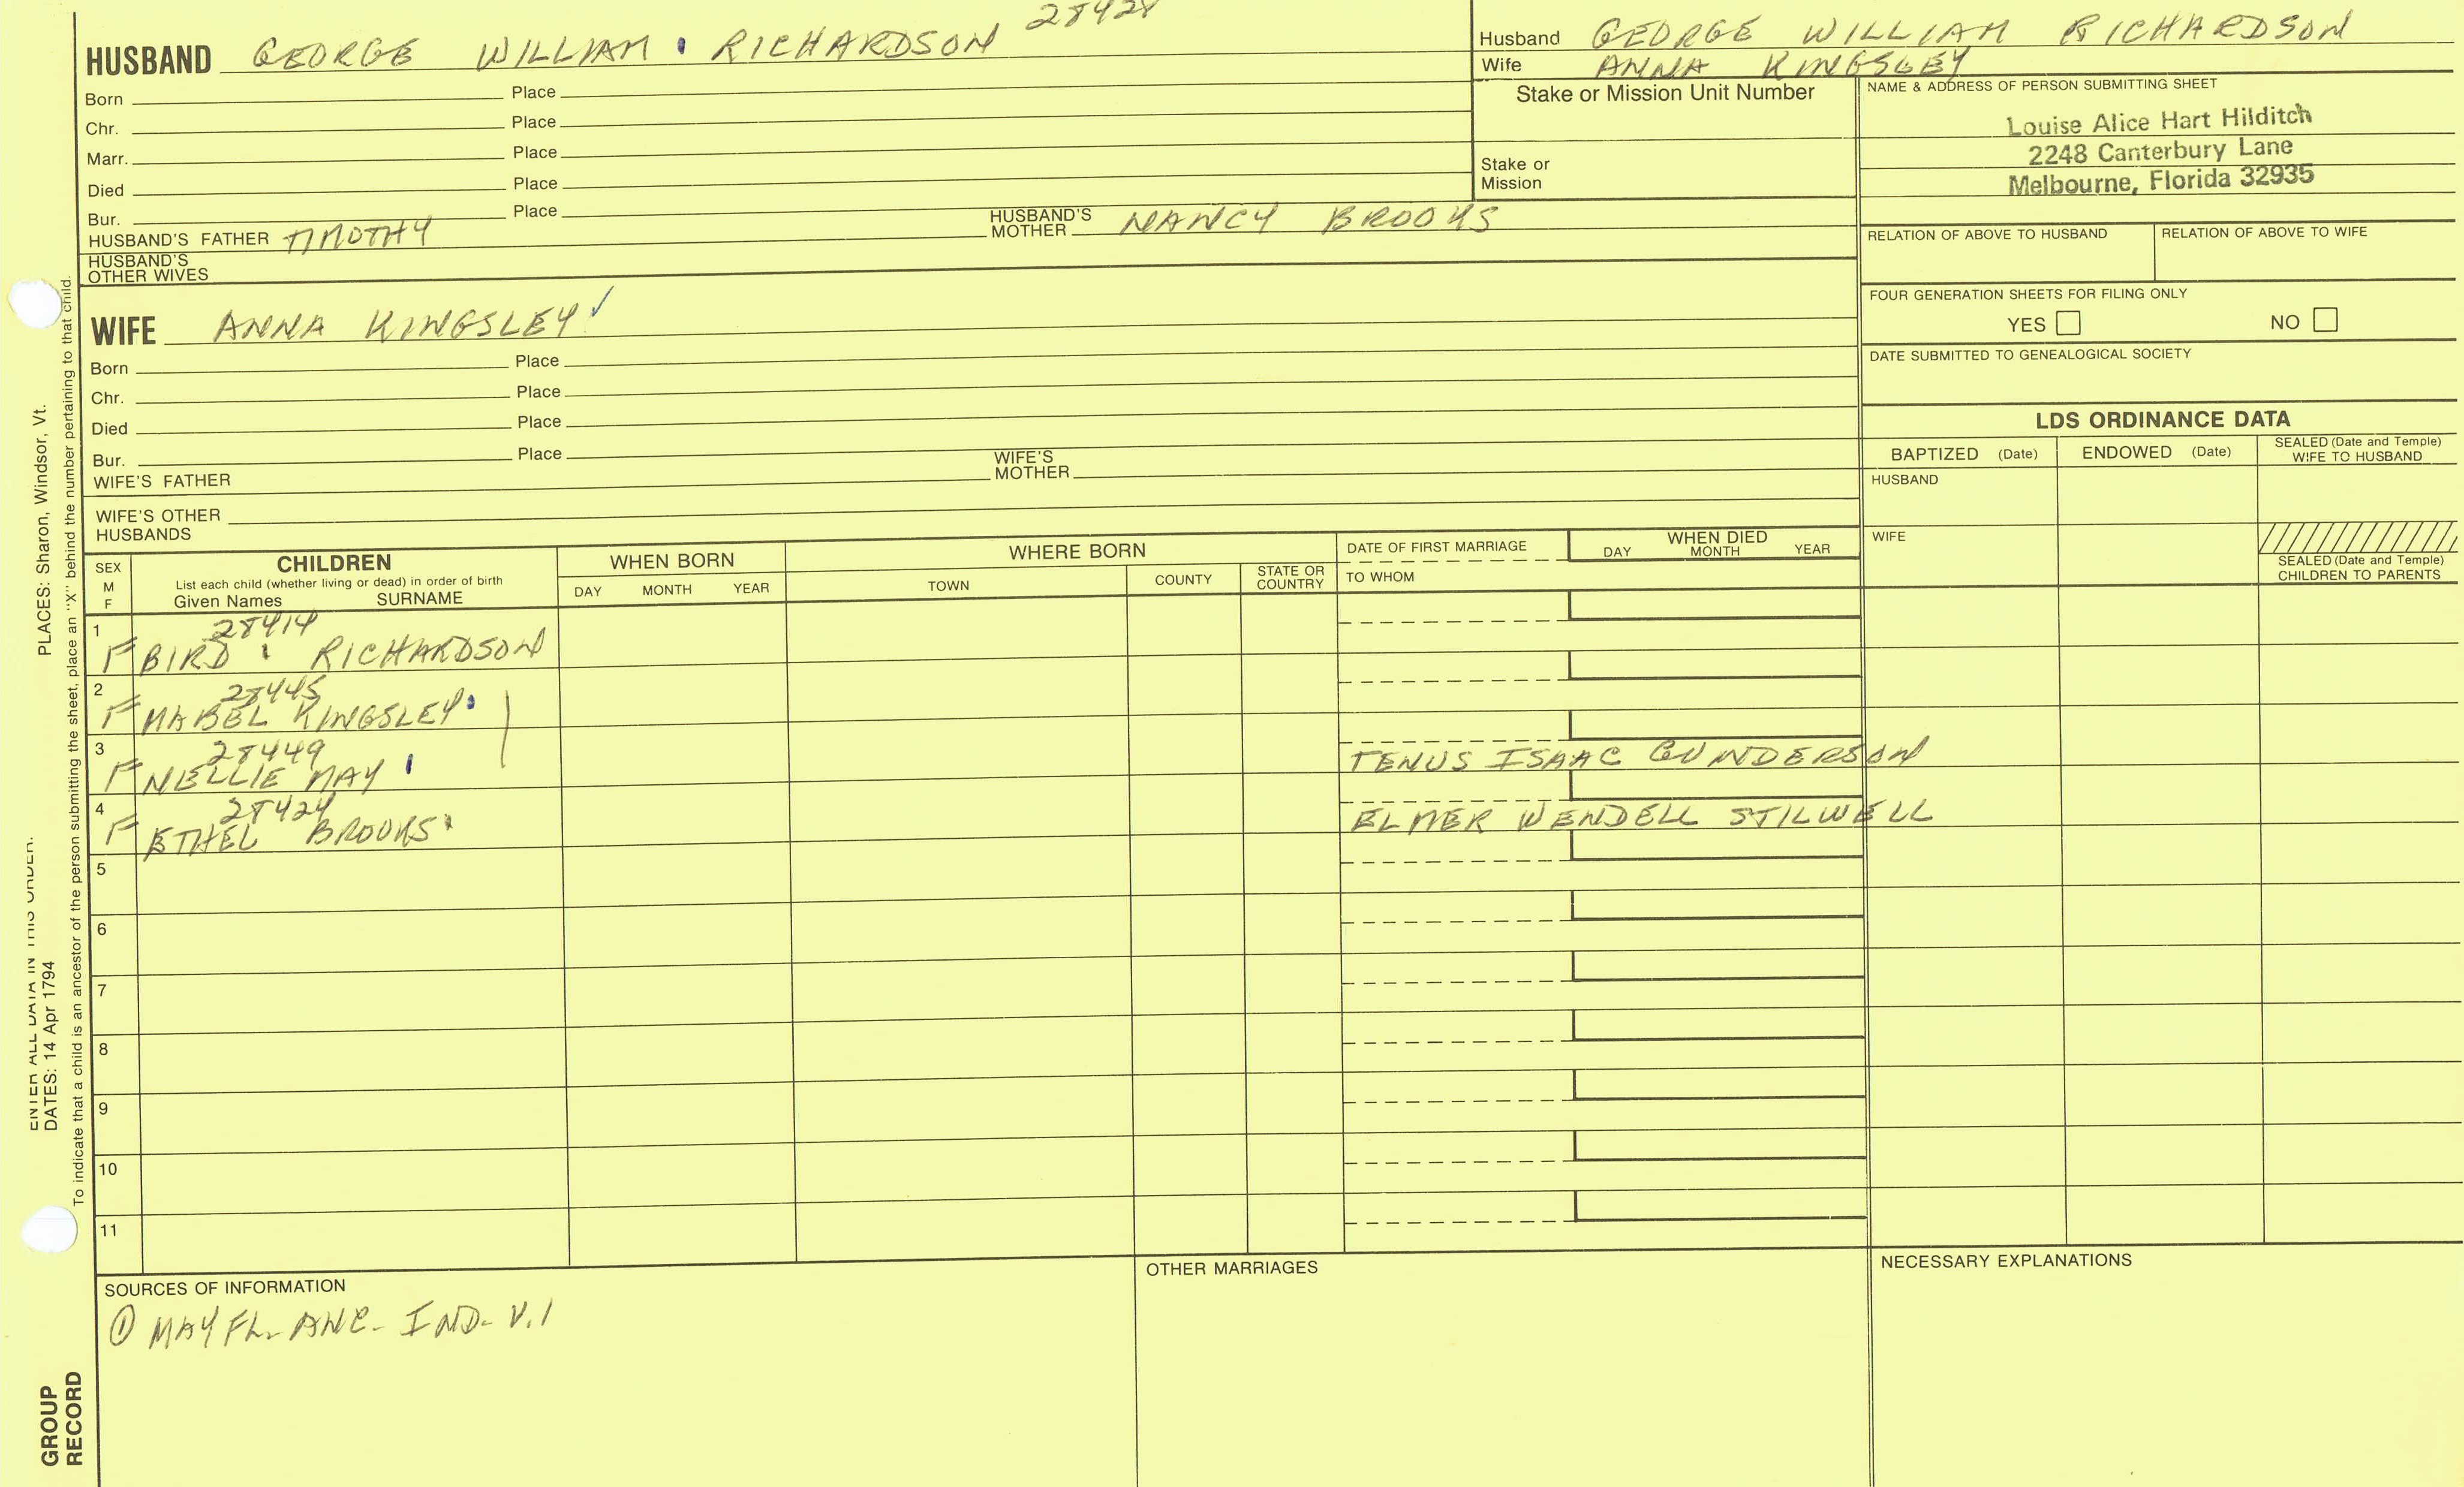 28428
HUSBAND GEORGE WILLIAM RICHARDSON
Born Place
Chr. Place
Marr. Place
Died Place
Bur. Place
HUSBAND'S FATHER TIMOTHY HUSBAND'S MOTHER NANCY BROOKS
HUSBAND'S OTHER WIVES
Husband GEORGE WILLIAM RICHARDSON
Wife ANNA KINGSLEY
Stake or Mission Unit Number
Stake or
Mission
NAME & ADDRESS OF PERSON SUBMITTING SHEET
Louise Alice Hart Hilditch
2248 Canterbury Lane
Melbourne, Florida 32935
RELATION OF ABOVE TO HUSBAND RELATION OF ABOVE TO WIFE
FOUR GENERATION SHEETS FOR FILING ONLY
YES NO
DATE SUBMITTED TO GENEALOGICAL SOCIETY
WIFE ANNA KINGSLEY
Born Place
Chr. Place
Died Place
Bur. Place
WIFE'S FATHER WIFE'S MOTHER
WIFE'S OTHER HUSBANDS
LDS ORDINANCE DATA
BAPTIZED (Date) ENDOWED (Date) SEALED (Date and Temple) WIFE TO HUSBAND
HUSBAND
WIFE
SEALED (Date and Temple)
CHILDREN TO PARENTS
SEX
M
F
CHILDREN
List each child (whether living or dead) in order of birth
Given Names SURNAME
WHEN BORN
DAY MONTH YEAR
WHERE BORN
TOWN COUNTY STATE OR COUNTRY
DATE OF FIRST MARRIAGE
TO WHOM
WHEN DIED
DAY MONTH YEAR
1 28414
F BIRD RICHARDSON
2 28445
F MABEL KINGSLEY
3 28449
F NELLIE MAY TENUS ISAAC GUNDERSON
4 28424
F ETHEL BROOKS ELMER WENDELL STILWELL
5
6
7
8
9
10
11
SOURCES OF INFORMATION
① MAYFL. ANC. IND. V.1
OTHER MARRIAGES
NECESSARY EXPLANATIONS
ENTER ALL DATA IN THIS ORDER:
DATES: 14 Apr 1794 PLACES: Sharon, Windsor, Vt.
To indicate that a child is an ancestor of the person submitting the sheet, place an "X" behind the number pertaining to that child.
GROUP
RECORD